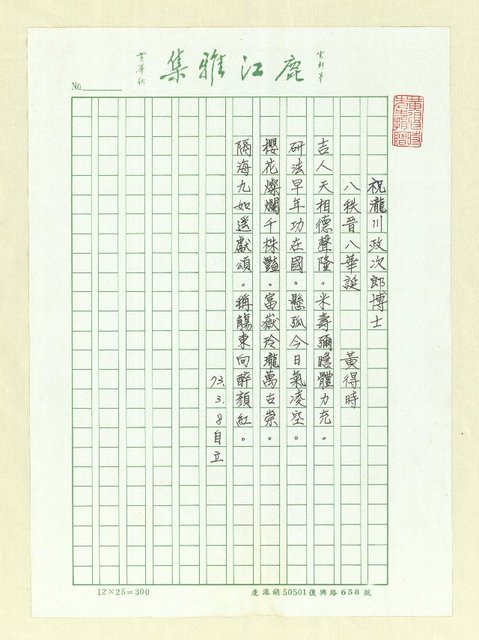 鹿江雅集
黃得時
№
祝瀧川政次郎博士
八秩晉八華誕　黃得時
吉人天相德聲隆。米壽彌瞻體力充。
研法早年功在國。懸弧今日氣凌空。
櫻花燦爛千株豔。富嶽玲瓏萬古崇。
隔海九如遙獻頌。稱觴東向醉顏紅。
73.3.8自立
12×25=300
鹿港鎮50501復興路658號